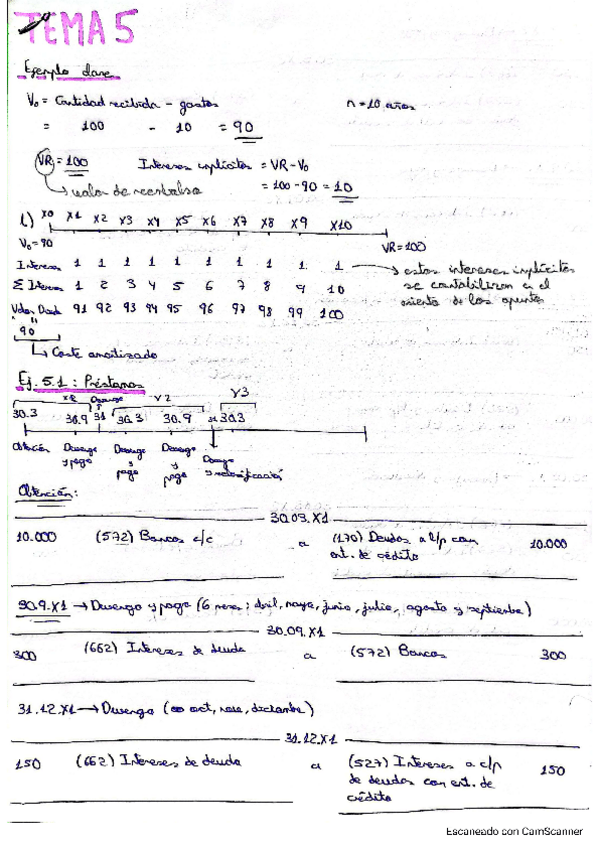 TEMA 5
Ejemplo clase
V₀ = Cantidad recibida - gastos n = 10 años
= 100 - 10 = 90
VR = 100 Intereses implícitos = VR - V₀
valor de reembolso = 100 - 90 = 10
X0 X1 X2 X3 X4 X5 X6 X7 X8 X9 X10
V₀ = 90 VR = 100
Intereses 1 1 1 1 1 1 1 1 1 1 → estos intereses implícitos
Σ Interes 1 2 3 4 5 6 7 8 9 10 se contabilizan en el
asiento de los apuntes
Valor Deud 91 92 93 94 95 96 97 98 99 100
90
Coste amortizado
Ej. 5.1: Préstamos
Devengo
30.3 30.9 31 30.3 30.9 30.3
Obtención Devengo y pago Devengo y pago Devengo y pago
Obtención:
30.03.X1
10.000 (572) Bancos c/c a (170) Deudas a l/p con 10.000
ent. de crédito
30.9.X1 → Devengo y pago (6 meses: abril, mayo, junio, julio, agosto y septiembre)
30.09.X1
300 (662) Intereses de deuda a (572) Bancos 300
31.12.X1 → Devengo
31.12.X1
150 (662) Intereses de deuda a (527) Intereses a c/p 150
de deudas con ent. de
crédito
Escaneado con CamScanner